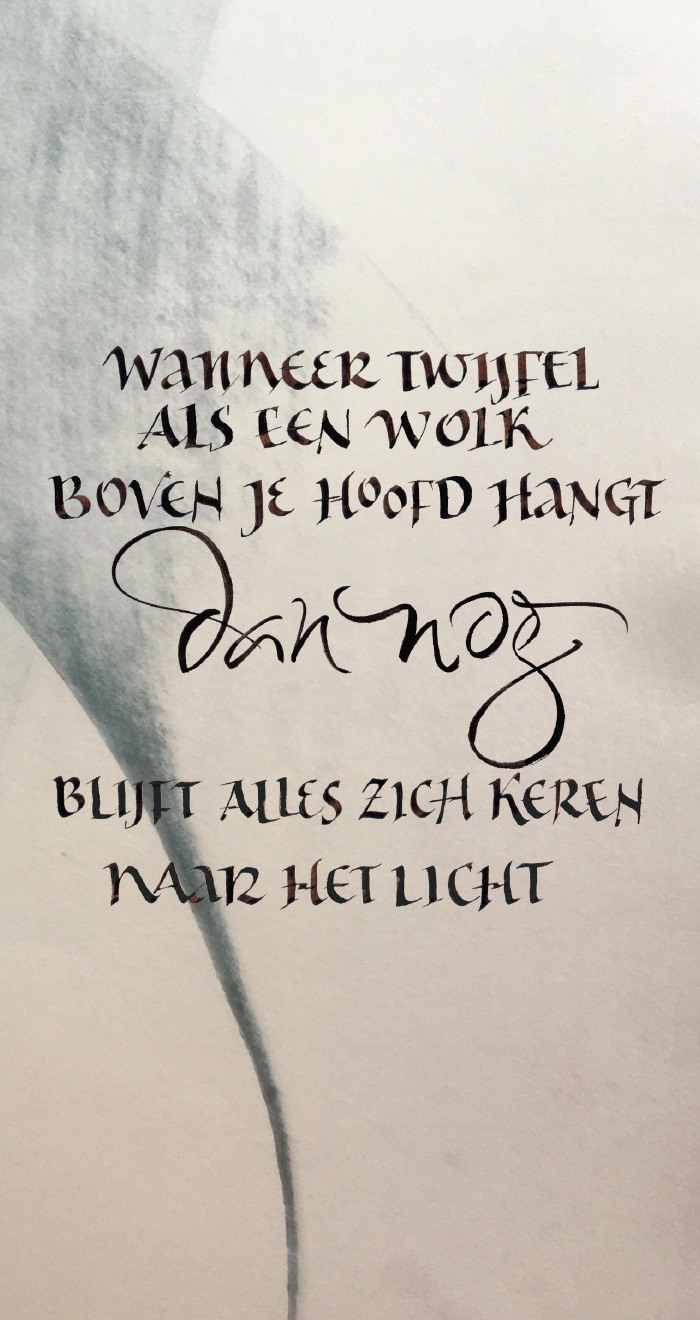 WANNEER TWIJFEL
ALS EEN WOLK
BOVEN JE HOOFD HANGT
dan nog
BLIJFT ALLES ZICH KEREN
NAAR HET LICHT